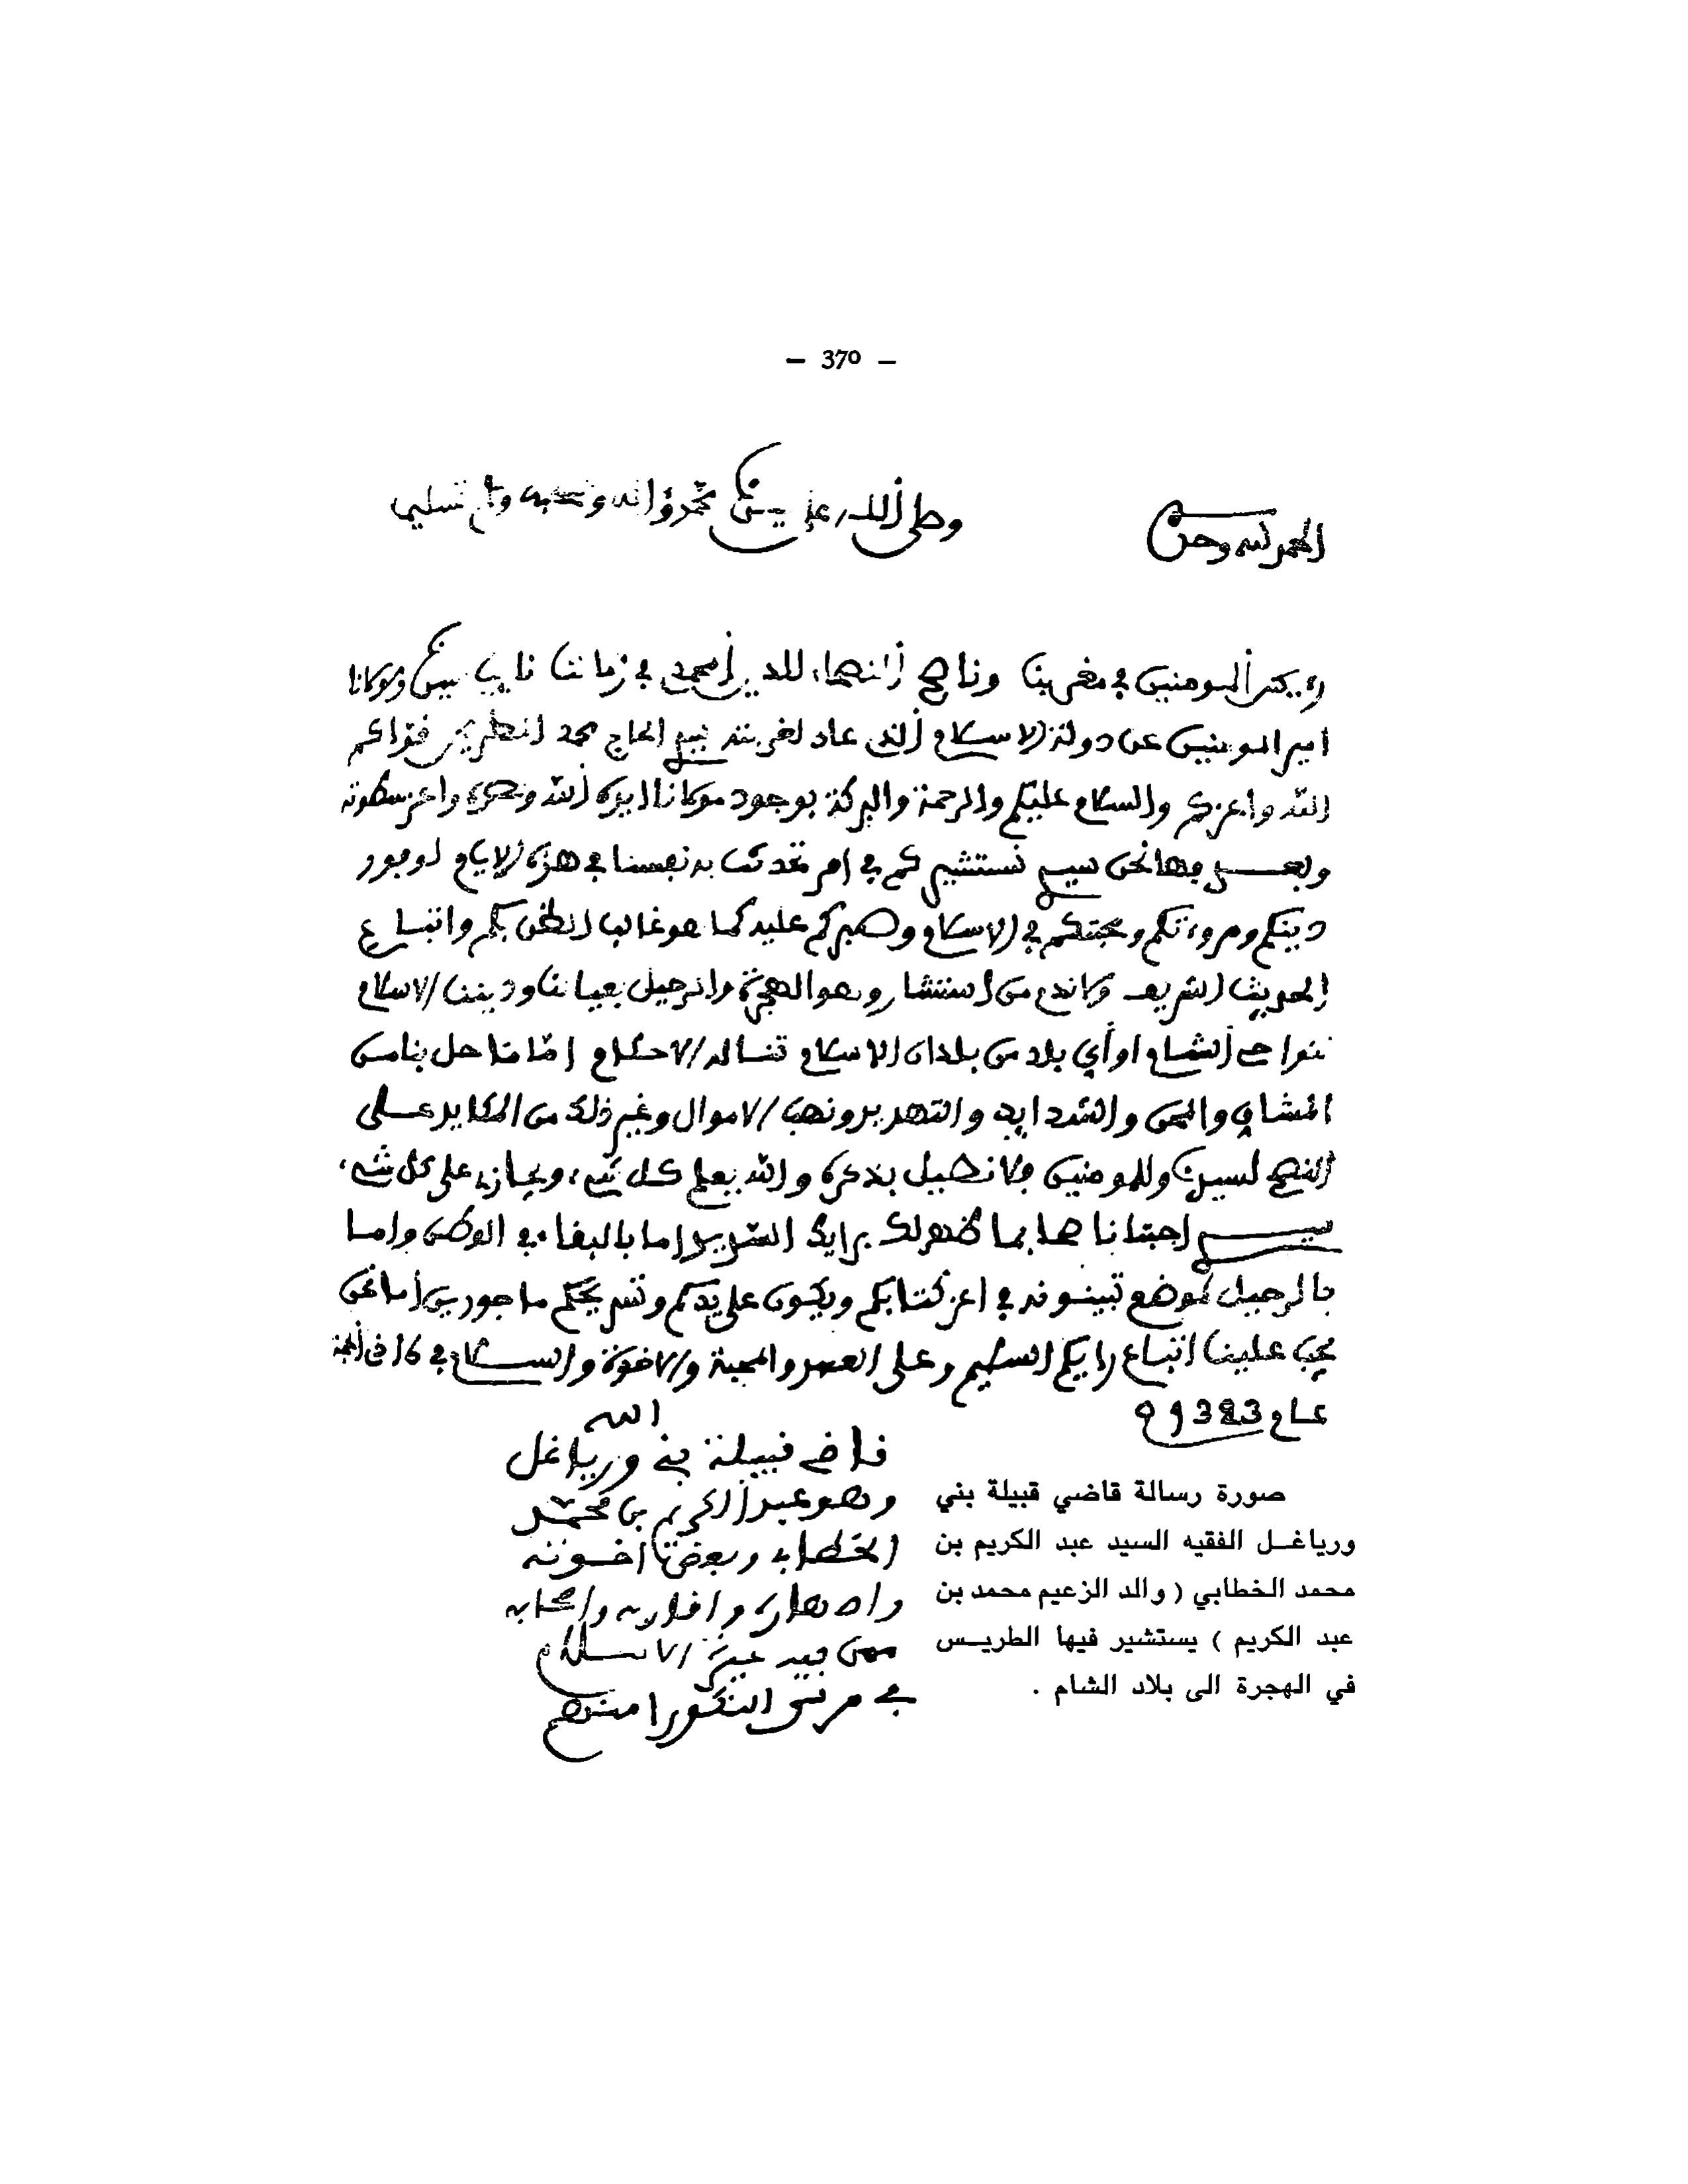 - 370 -
الحمد لله وحده
وصلى الله على سيدنا محمد وآله وصحبه وسلم تسليما
المومنين في مغربنا وناصح النصحاء للدين المحمدي في زماننا نايب سيدنا ومولانا
امير المومنين عن دولة الاسلام الذي عاد لغربته سيدي الحاج محمد الطريس قواكم
الله واعزكم والسلام عليكم والرحمة والبركة بوجود مولانا ايده الله ونصره واعز سطوته
وبعد فها نحن سيدي نستشيركم في امر تحدثت به نفسنا في هذه الايام لوجود
دينكم ومروءتكم ومحبتكم في الاسلام وصبركم عليه كما هو غالب الظن بكم واتباع
الحديث الشريف ولا ندم من استشار وهو الهجرة والرحيل بعيالنا وديننا الاسلام
الشام او أي بلد من بلدان الاسلام تناله الاحكام اما ما حل بنا من
المشاق والمحن والشدايد والتهديد ونهب الاموال وغير ذلك من المكايد على
النصح لسيدنا وللمومنين فلا نطيل بذكره والله يعلم كل شيء ويجازي على كل شيء
سيدي اجبنا بما ظهر لك برايك السديد اما بالبقاء في الوطن واما
بالرحيل لموضع تبينونه في اعز كتابكم ويكون على يدكم وتسريحكم ماجورين اما نحن
يجب علينا اتباع رايكم السليم وعلى العهد والمحبة والاخوة والسلام في
عام 1323
الله
قاضي قبيلة بني ورياغل
وهو عبد الكريم بن محمد
الخطابي وبعض اخوته
واصهاره واقاربه واصحابه
ممن فيه غيرة الاسلام
مرسى النكور امنهم
صورة رسالة قاضي قبيلة بني
ورياغل الفقيه السيد عبد الكريم بن
محمد الخطابي ( والد الزعيم محمد بن
عبد الكريم ) يستشير فيها الطريس
في الهجرة الى بلاد الشام .